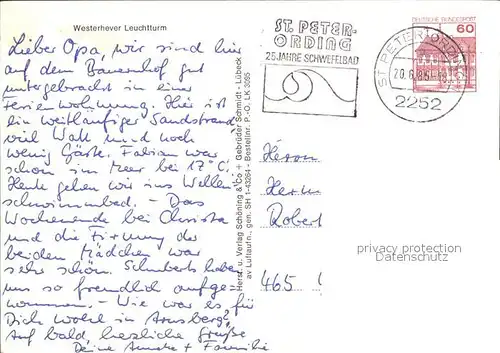 Westerhever Leuchtturm
Lieber Opa, wir sind hier
auf dem Bauernhof gut
untergebracht in einer
Ferienwohnung. Hier ist
ein weitläufiger Sandstrand,
viel Watt und noch
wenig Gäste. Fabian war
schon im Meer bei 17°C.
Heute gehen wir ins Wellen
schwimmbad. – Das
Wochenende bei Christa
und die Firmung der
beiden Mädchen war
sehr schön. Schuberts haben
uns so freundlich aufge=
nommen. – Wie war es für
Dich wohl in Arnsberg?
Auf bald, herzliche Grüße
Deine + Familie
Herst. u. Verlag Schöning & Co + Gebrüder Schmidt · Lübeck
av Luftaufn., gen. SH 1-43264 - Bestellnr. P.-O. LK 3055
ST. PETER-
ORDING
25 JAHRE SCHWEFELBAD
ST PETER-ORDING
2252
DEUTSCHE BUNDESPOST
60
Herrn
Herm
Robert
465
privacy protection
Datenschutz